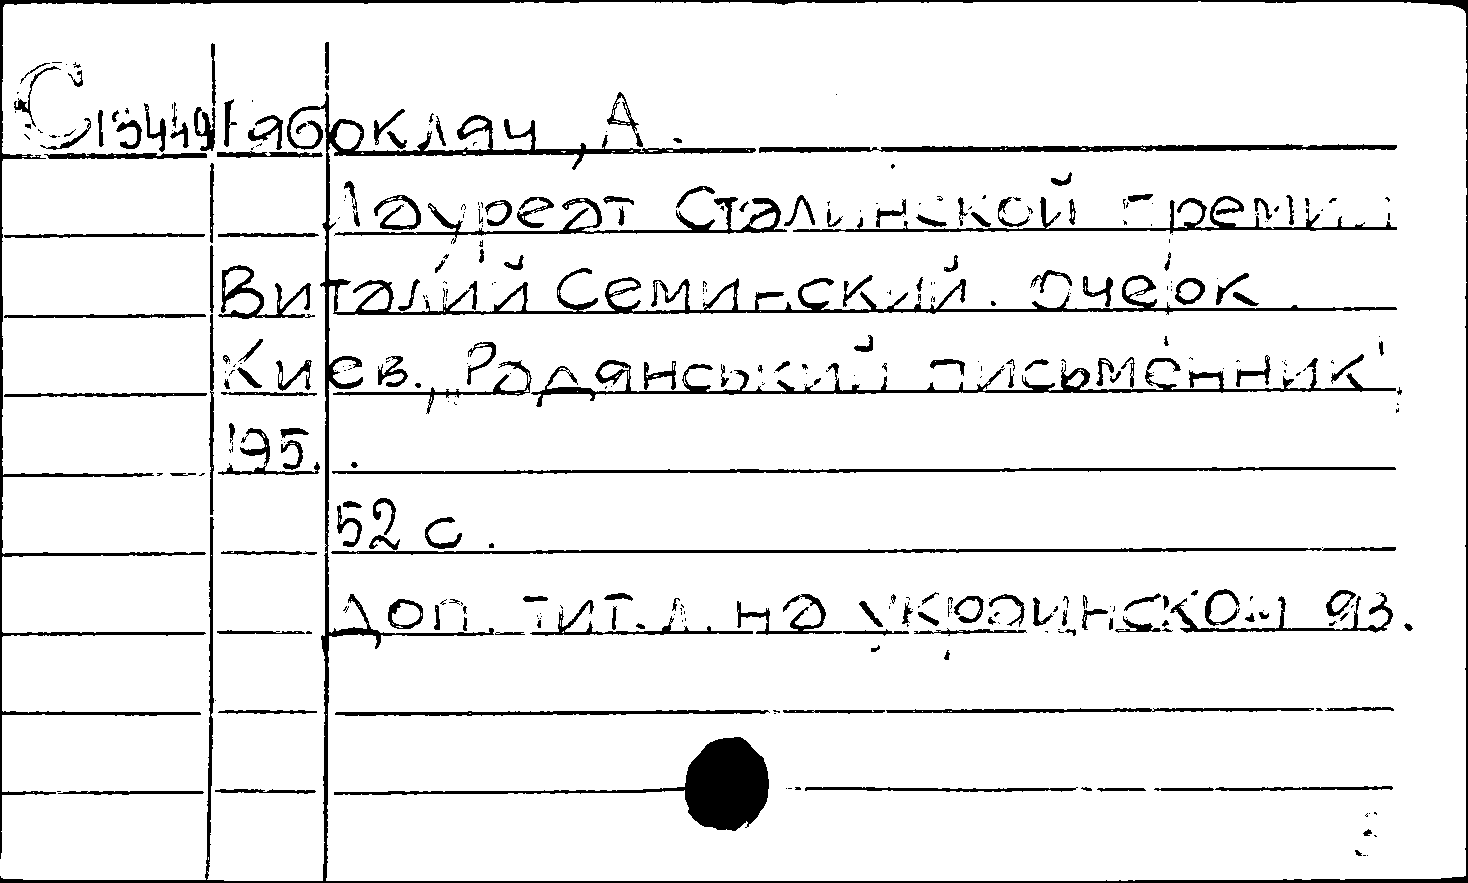 С 13449 Рябокляч, А.
Лауреат Сталинской премии
Виталий Семинский. Очерк.
Киев. „Радянський письменник",
195.
52 с.
Доп. тит. л. на украинском яз.